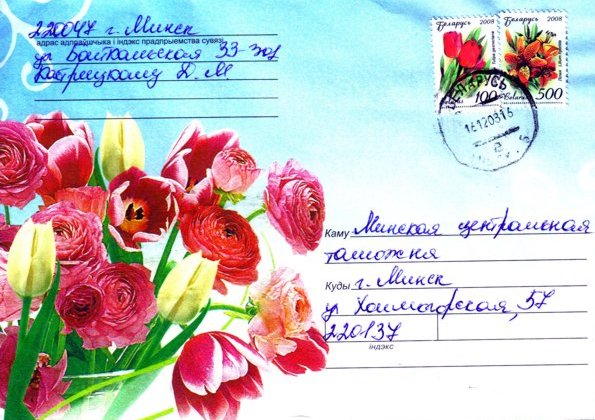 220047 г. Минск
адрас адпраўшчыка і індэкс прадпрыемства сувязі
ул Байкальская 33-
Д. М
Беларусь 2008
100
Беларусь 2008
500
БЕЛАРУСЬ
Каму Минская центральная
таможня
Куды г. Минск
ул Хотогорская, 57
220137
індэкс